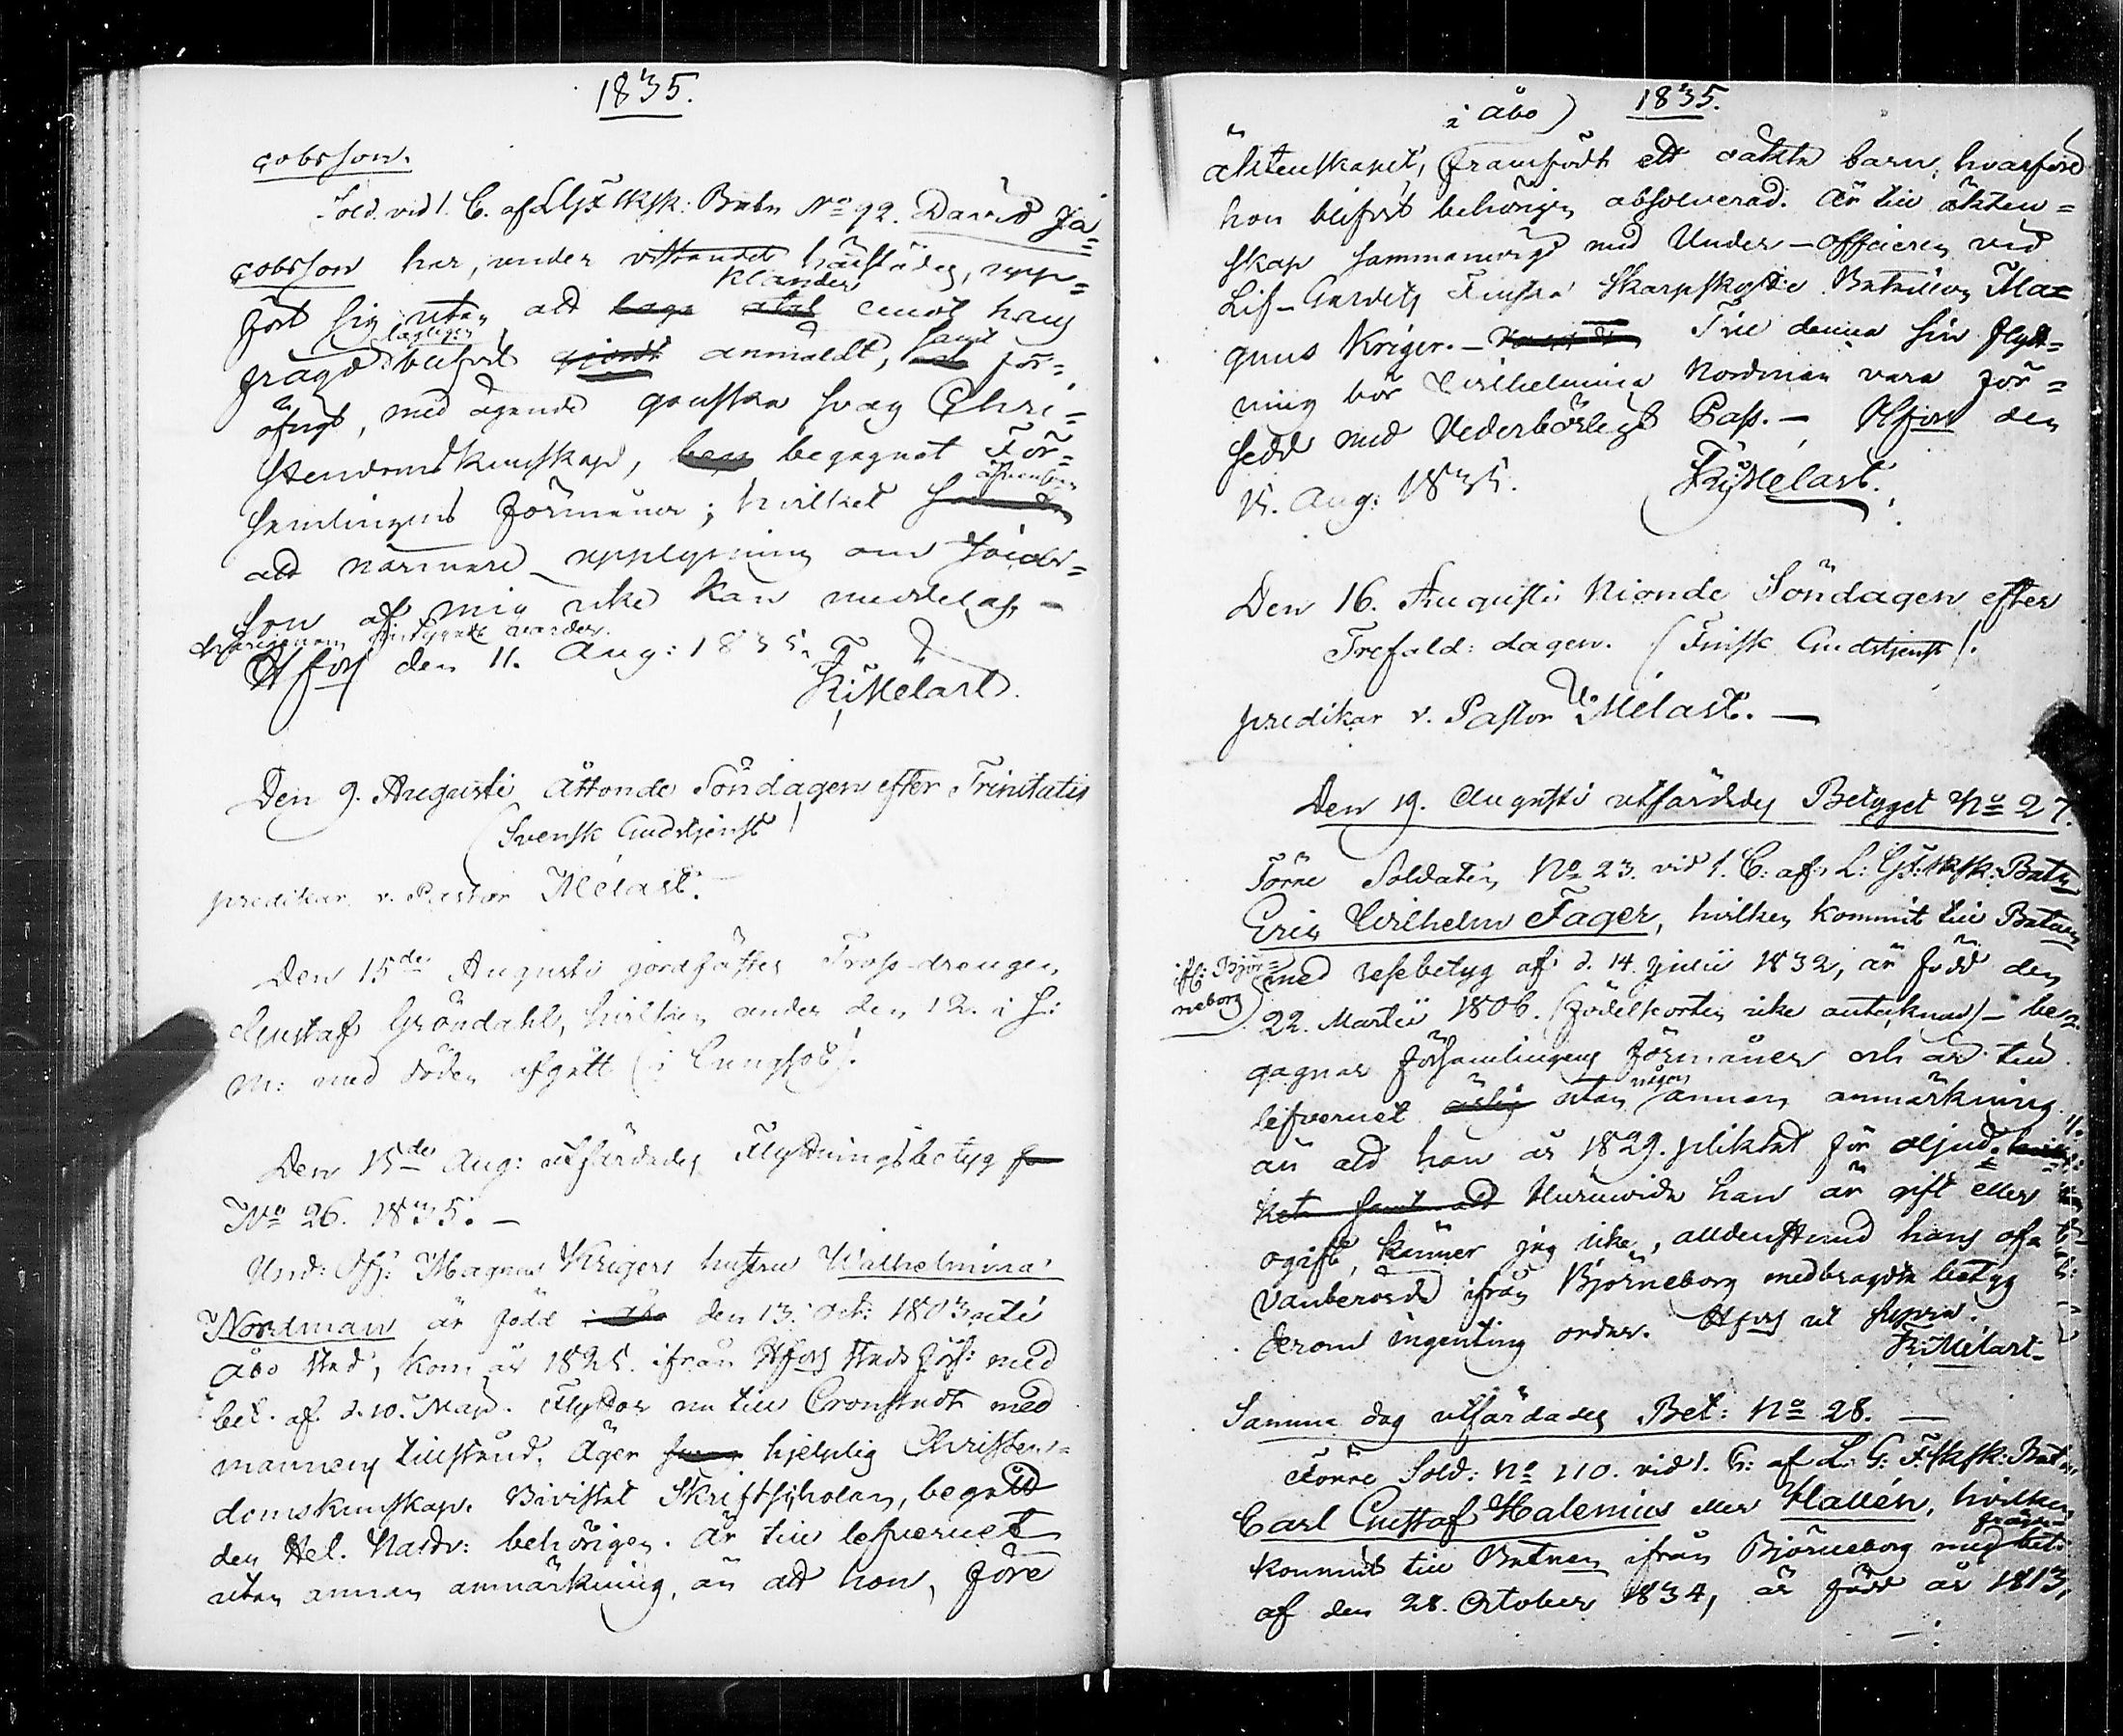 1835.
cobsson.
Sold. vid 1. C. af L. G. F. Sksk: Batn No 92. David Ja=
cobsson har, under vistandet härstädes, upp=
klander
fört sig utan att emot hans
lagligen samt
frägd blifvit gjordt anmäldt, för=
öfrigt, med ägande ganska svag Chri=
stendomskunskap, begagnat För=
äfvensom
samlingens förmåner; hvilket
att närmare upplysning om Jacobs=
son af mig icke kan meddelas,
härigenom varder.
Hfors den 11. Aug: 1835.
F. Melart.
Den 9. Augusti Åttonde Söndagen efter Trinitatis
(Svensk Gudstjenst)
predikar v. Pastor Melart.
Den 15de Augusti jordfästes Tross-drengen
Gustaf Gröndahl, hvilken under den 12. i s:
m: med döden afgått (i Lungsot).
Den 15de Aug: utfärdades Flyttningsbetyg
No 26. 1835. —
Und: Off: Magnus Krigers hustru Wilhelmina
Nordman är född den 13. Oct: 1803 uti
Åbo stad, kom år 1825. ifrån Hfors Stads förs: med
bet. af d. 10. Maji. Flyttar nu till Cronstadt med
mannens tillstånd. Äger hjelplig Christen=
domskunskap. Bivistat Skriftskolan, begått
den Hel. Nattv: behörigen. Är till lefvernet
utan annan anmärkning, än att hon, före
1835.
i Åbo)
äktenskapet, framfödt ett oäkta barn, hvarföre
hon blifvit behörigen absolverad. Är till äkten=
skap sammanvigd med Under-officeren vid
Lif-Gardets Finska Skarpskytte Bataillon Ma=
gnus Kriger. — Till denna sin flytt=
ning bör Wilhelmina Nordman vara för=
sedd med Vederbörligt Pass. — Hfors den
15. Aug: 1835.
F. Melart.
Den 16. Augusti Nionde Söndagen efter
Trefald: dagen. (Finsk Gudstjenst).
predikar v. Pastor Melart. —
Den 19. Augusti utfärdades Betyget No 27.
Förre Soldaten No 23. vid 1. C: af L: G: F: Sksk: Batn
Eric Wilhelm Fager, hvilken kommit till Batn
if: Björ=
neborg
med resebetyg af d. 14. Julii 1832, är född den
22. Martii 1806. (födelseorten icke antecknad) — be=
gagnar församlingens förmåner och är till
någon
lefvernet ärlig utan annan anmärkning
än att han år 1829. pliktat för oljud.
ket samt att Huruvida han är gift eller
ogift, känner jag icke, alldenstund hans of=
vanberörde ifrån Björneborg medbragdte betyg
derom ingenting ordar. Hfors ut supra.
F. Melart.
Samma dag utfärdades Bet: No 28. —
Förre Sold: No 110. vid 1. C: af L. G: F. Sksk: Batn
Carl Gustaf Halenius eller Hallén, hvilken
kommit till Batnen ifrån Björneborg med bet.
af den 28. October 1834, är född år 1813,